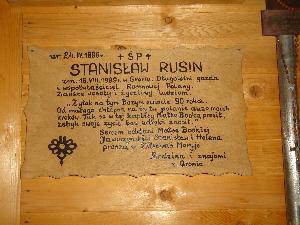 ur. 24.IV.1896r.
+ Ś P +
STANISŁAW RUSIN
zm. 16.VIII.1985r. w Groniu. Długoletni gazda
i współwłaściciel Rusinowej Polany.
Zawsze wesoły i życzliwy ludziom.
Bożym świecie 90 roków.
Od małego chłopca na tej polanie
Tak w tej kaplicy Matko Bosko prosił,
zebyk swoje życie bez
Sercem oddani Matce Boskiej
Jaworzyńskiej Stanisław i Helena
proszą o Zdrowaś Maryjo
Rodzina i znajomi
z Gronia